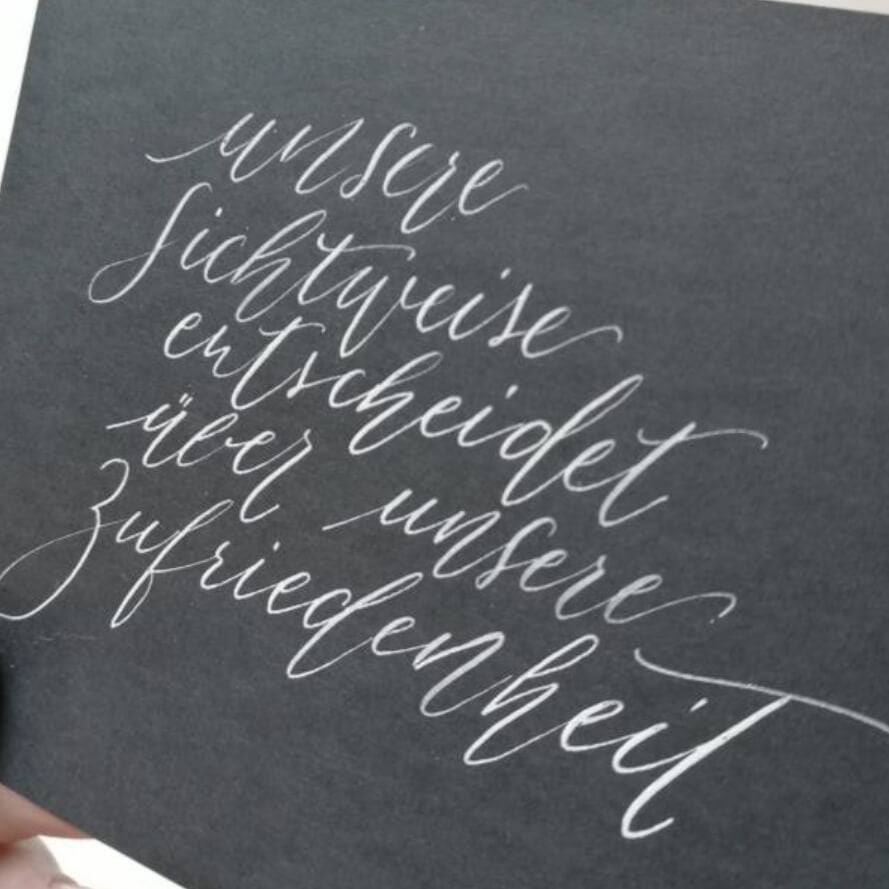 unsere
Sichtweise
entscheidet
über unsere
Zufriedenheit